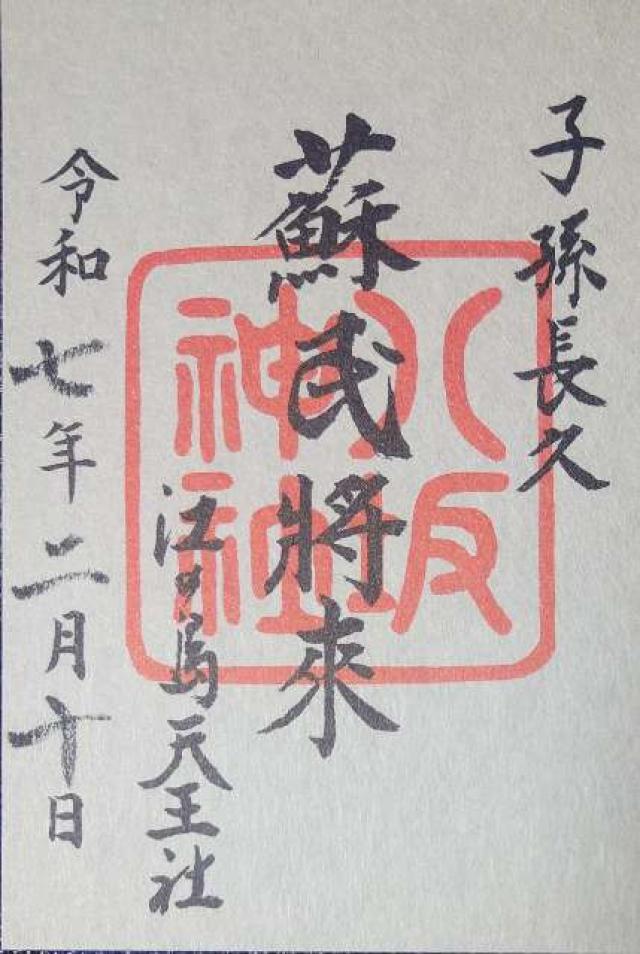 子孫長久
蘇民將來
八坂
神社
江ノ島天王社
令和七年二月十日